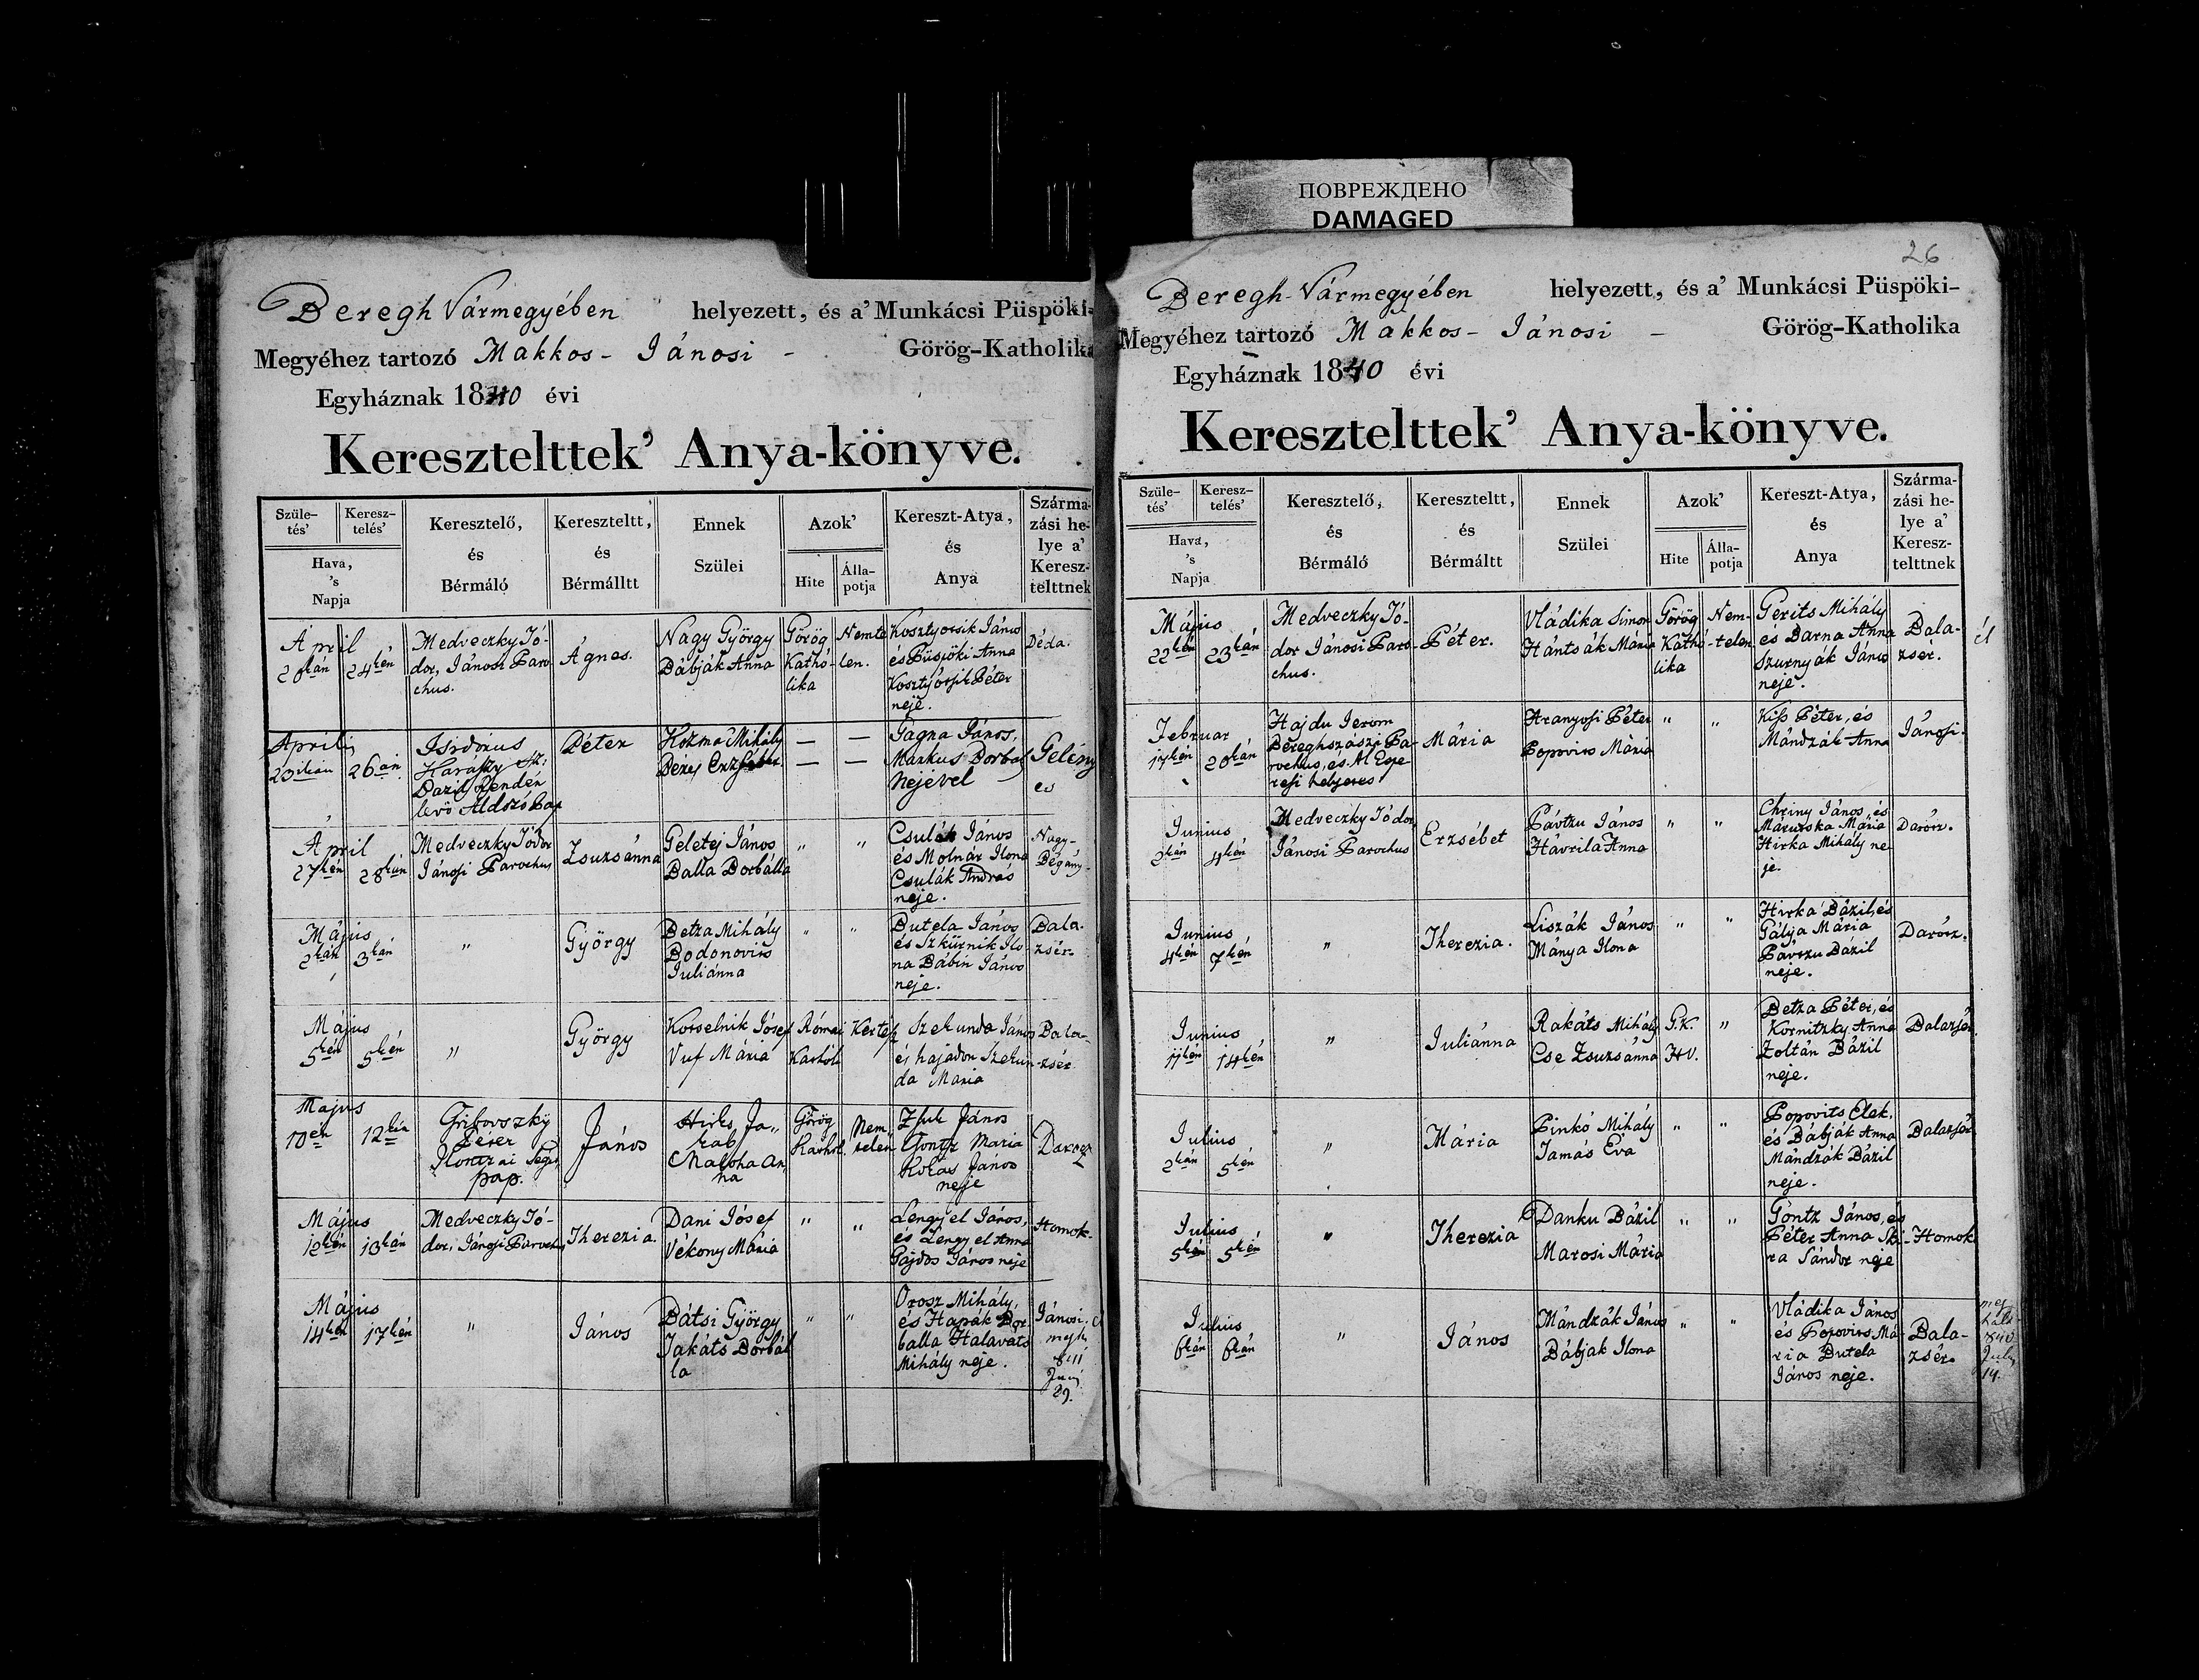 ПОВРЕЖДЕНО
DAMAGED
Beregh Vármegyében helyezett, és a' Munkácsi Püspöki-
Megyéhez tartozó Makkos - Jánosi - Görög-Katholika
Egyháznak 1840 évi
Keresztelttek' Anya-könyve.
Szüle-
tés'
Keresz-
telés'
Hava,
's
Napja
Keresztelő,
és
Bérmáló
Kereszteltt,
és
Bérmálltt
Ennek
Szülei
Azok'
Hite
Álla-
potja
Kereszt-Atya,
és
Anya
Szárma-
zási he-
lye a'
Keresz-
telttnek
April
24kén
Medveczky Tó-
dor, Jánosi Paro
chus.
Ágnes.
Nagy György
Bábják Anna
Görög
Kathó-
lika
Nemte
len.
Kosztyorsik János
és Püspöki Anna
Kosztyorsik Péter
neje.
Déda.
Aprilis
26án
Isidorus
Péter
Kozma Mihály
— —
— —
Gagna János,
Markus Borbas
Nejével
April
27kén 28kán
Medveczky Tódor
Jánosi Parochus
Zsuzsánna
Geletej János
Balla Borbálla
" "
Csulák János
és Molnár Ilona
Csulák András
neje.
Nagy-
Bégány.
Május
2kán 3kán
"
György
Betza Mihály
Bodonovics
Juliánna
" "
Butela János
és Szkürnik Ilo-
na Bábin János
neje.
Bala-
zsér.
Május
5kén 5kén
"
György
Korselnik Jósef
Vuf Mária
Római
Kathol
Kertesz
Szekunda János
és hajadon Szekun-
da Maria
Bala-
zsér
Majus
10én 12kén
Gribovszky
Péter
pap.
János
Görög
Kathol.
Nem
telen
János
Gontz Maria
János
neje
Május
12kén 13kán
Medveczky Tó-
dor, Jánosi Parochus
Therezia.
Dani Jósef
Vékony Mária
" "
Lengyel János,
és Lengyel Anna
Gajdos János neje
Homok.
Május
14kén 17kén
"
János
Bátsi György
Takáts Borbál
la
" "
Orosz Mihály,
és Hapák Bor
balla Halaváts
Mihály neje.
Jánosi,
26
Beregh-Vármegyében helyezett, és a' Munkácsi Püspöki-
Megyéhez tartozó Makkos - Jánosi - Görög-Katholika
Egyháznak 1840 évi
Keresztelttek' Anya-könyve.
Szüle-
tés'
Keresz-
telés'
Hava,
's
Napja
Keresztelő,
és
Bérmáló
Kereszteltt,
és
Bérmáltt
Ennek
Szülei
Azok'
Hite
Álla-
potja
Kereszt-Atya,
és
Anya
Szárma-
zási he-
lye a'
Keresz-
telttnek
Május
22kén 23kán
Medveczky Tó-
dor Jánosi Paro-
chus.
Péter.
Vládika Simon
Hántsák Mária
Görög
Kathó-
lika
Nem-
telen
Gerits Mihály
és Barna Anna
Szurnyák János
neje.
Bala-
zser.
él
Februar
17kén 20kán
Hajdu Jerom
Bereghszászi Pa-
rochus, és Al Espe
resi helyetes
Mária
Aranyosi Péter
Popovics Mária
" "
Kiss Péter, és
Mándzák Anna
Jánosi.
Junius
2kán 4kén
Medveczky Tódor
Jánosi Parochus
Erzsébet
Pávtzu János
Havrila Anna
" "
Chriny János, és
Maruzska Mária
Hirka Mihály ne
je.
Darócz.
Junius
4kén 7kén
"
Therezia.
Liszák János
Mánya Ilona
" "
Hirka Bázil, és
Gálja Mária
Pávtzu Bázil
neje.
Darócz.
Junius
11kén 14kén
"
Juliánna
Rakáts Mihály
Cse Zsuzsánna
G.K.
H.V.
"
Betza Péter, és
Kornitzky Anna
Zoltán Bázil
neje.
Balazsér.
Julius
2kán 5kén
"
Mária
Pinkó Mihály
Tamás Éva
" "
Popovits Elek,
és Bábják Anna
Mándzák Bázil
neje.
Balazsér
Julius
5kén 5kén
"
Therezia
Danku Bázil
Marosi Mária
" "
Göntz János, és
Péter Anna Ski-
ra Sándor neje
Homok
Julius
6kán 6kán
"
János
Mándzák János
Bábjak Ilona
" "
Vládika János
és Popovics Má
ria Butela
János neje.
Bala-
zsér.